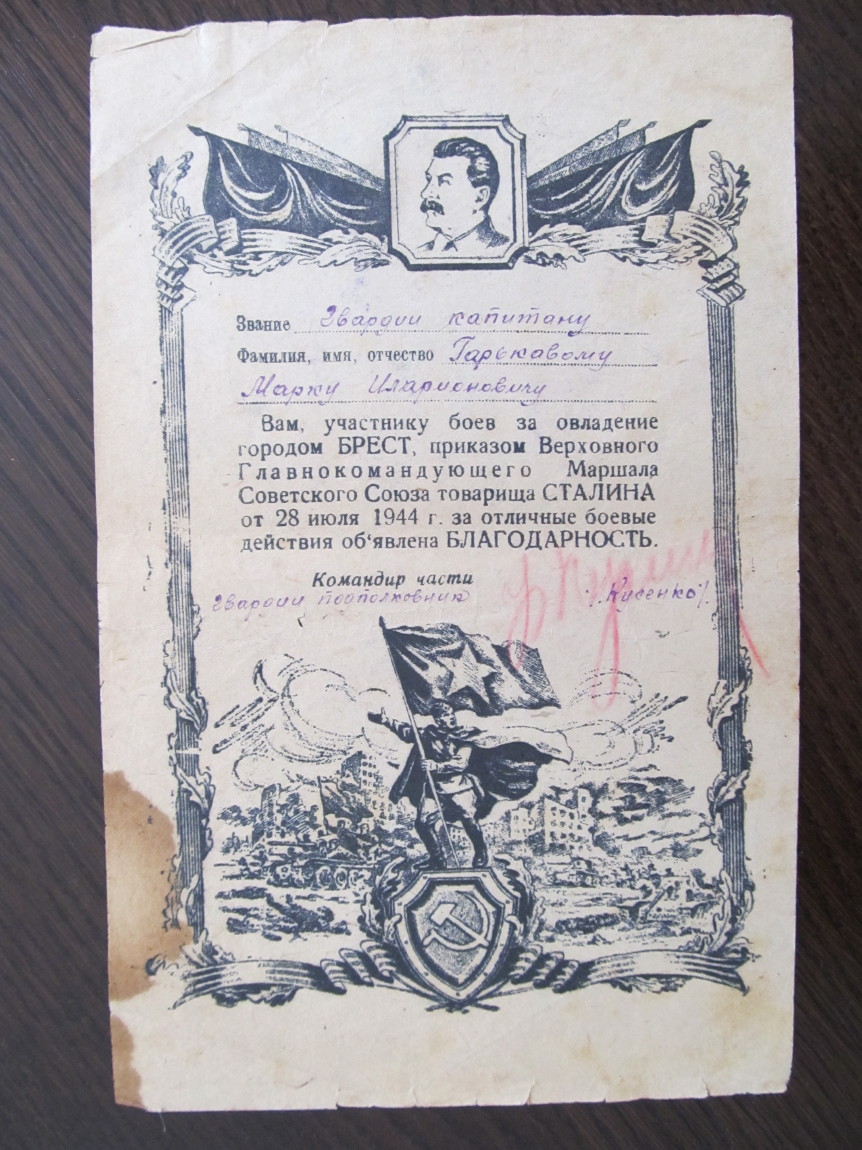 Звание гвардии капитану
Фамилия, имя, отчество Гарьковому
Марку Иларионовичу
Вам, участнику боев за овладение
городом БРЕСТ, приказом Верховного
Главнокомандующего Маршала
Советского Союза товарища СТАЛИНА
от 28 июля 1944 г. за отличные боевые
действия об‘явлена БЛАГОДАРНОСТЬ.
Командир части
гвардии подполковник /Кисенко/